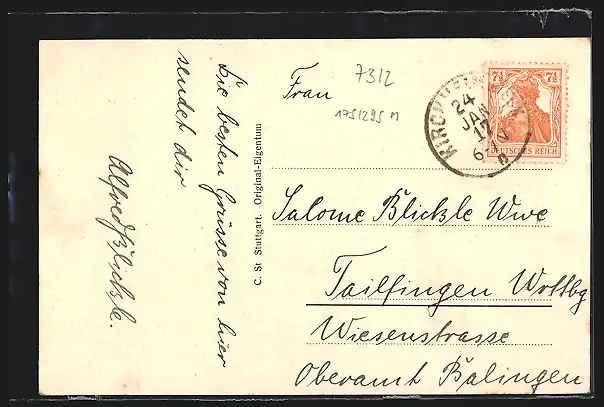 Die besten Grüsse von hier
sendet dir
Alfred Blickle.
C. St Stuttgart. Original-Eigentum
7312
1751295 M
Frau
Salome Blickle Wwe
Tailfingen Wttbg
Wiesenstrasse
Oberamt Balingen
KIRCHHEIM
24
JAN
17
6-7 V
7½ 7½
DEUTSCHES REICH